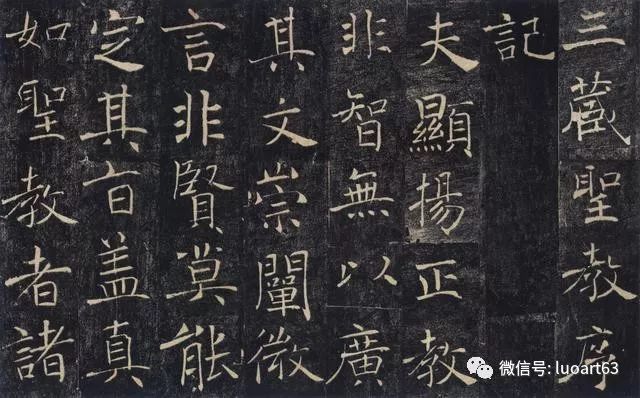 三藏聖教序
記
夫顯揚正教
非智無以廣
其文崇闡微
言非賢莫能
定其旨盖真
如聖教者諸
微信号: luoart63